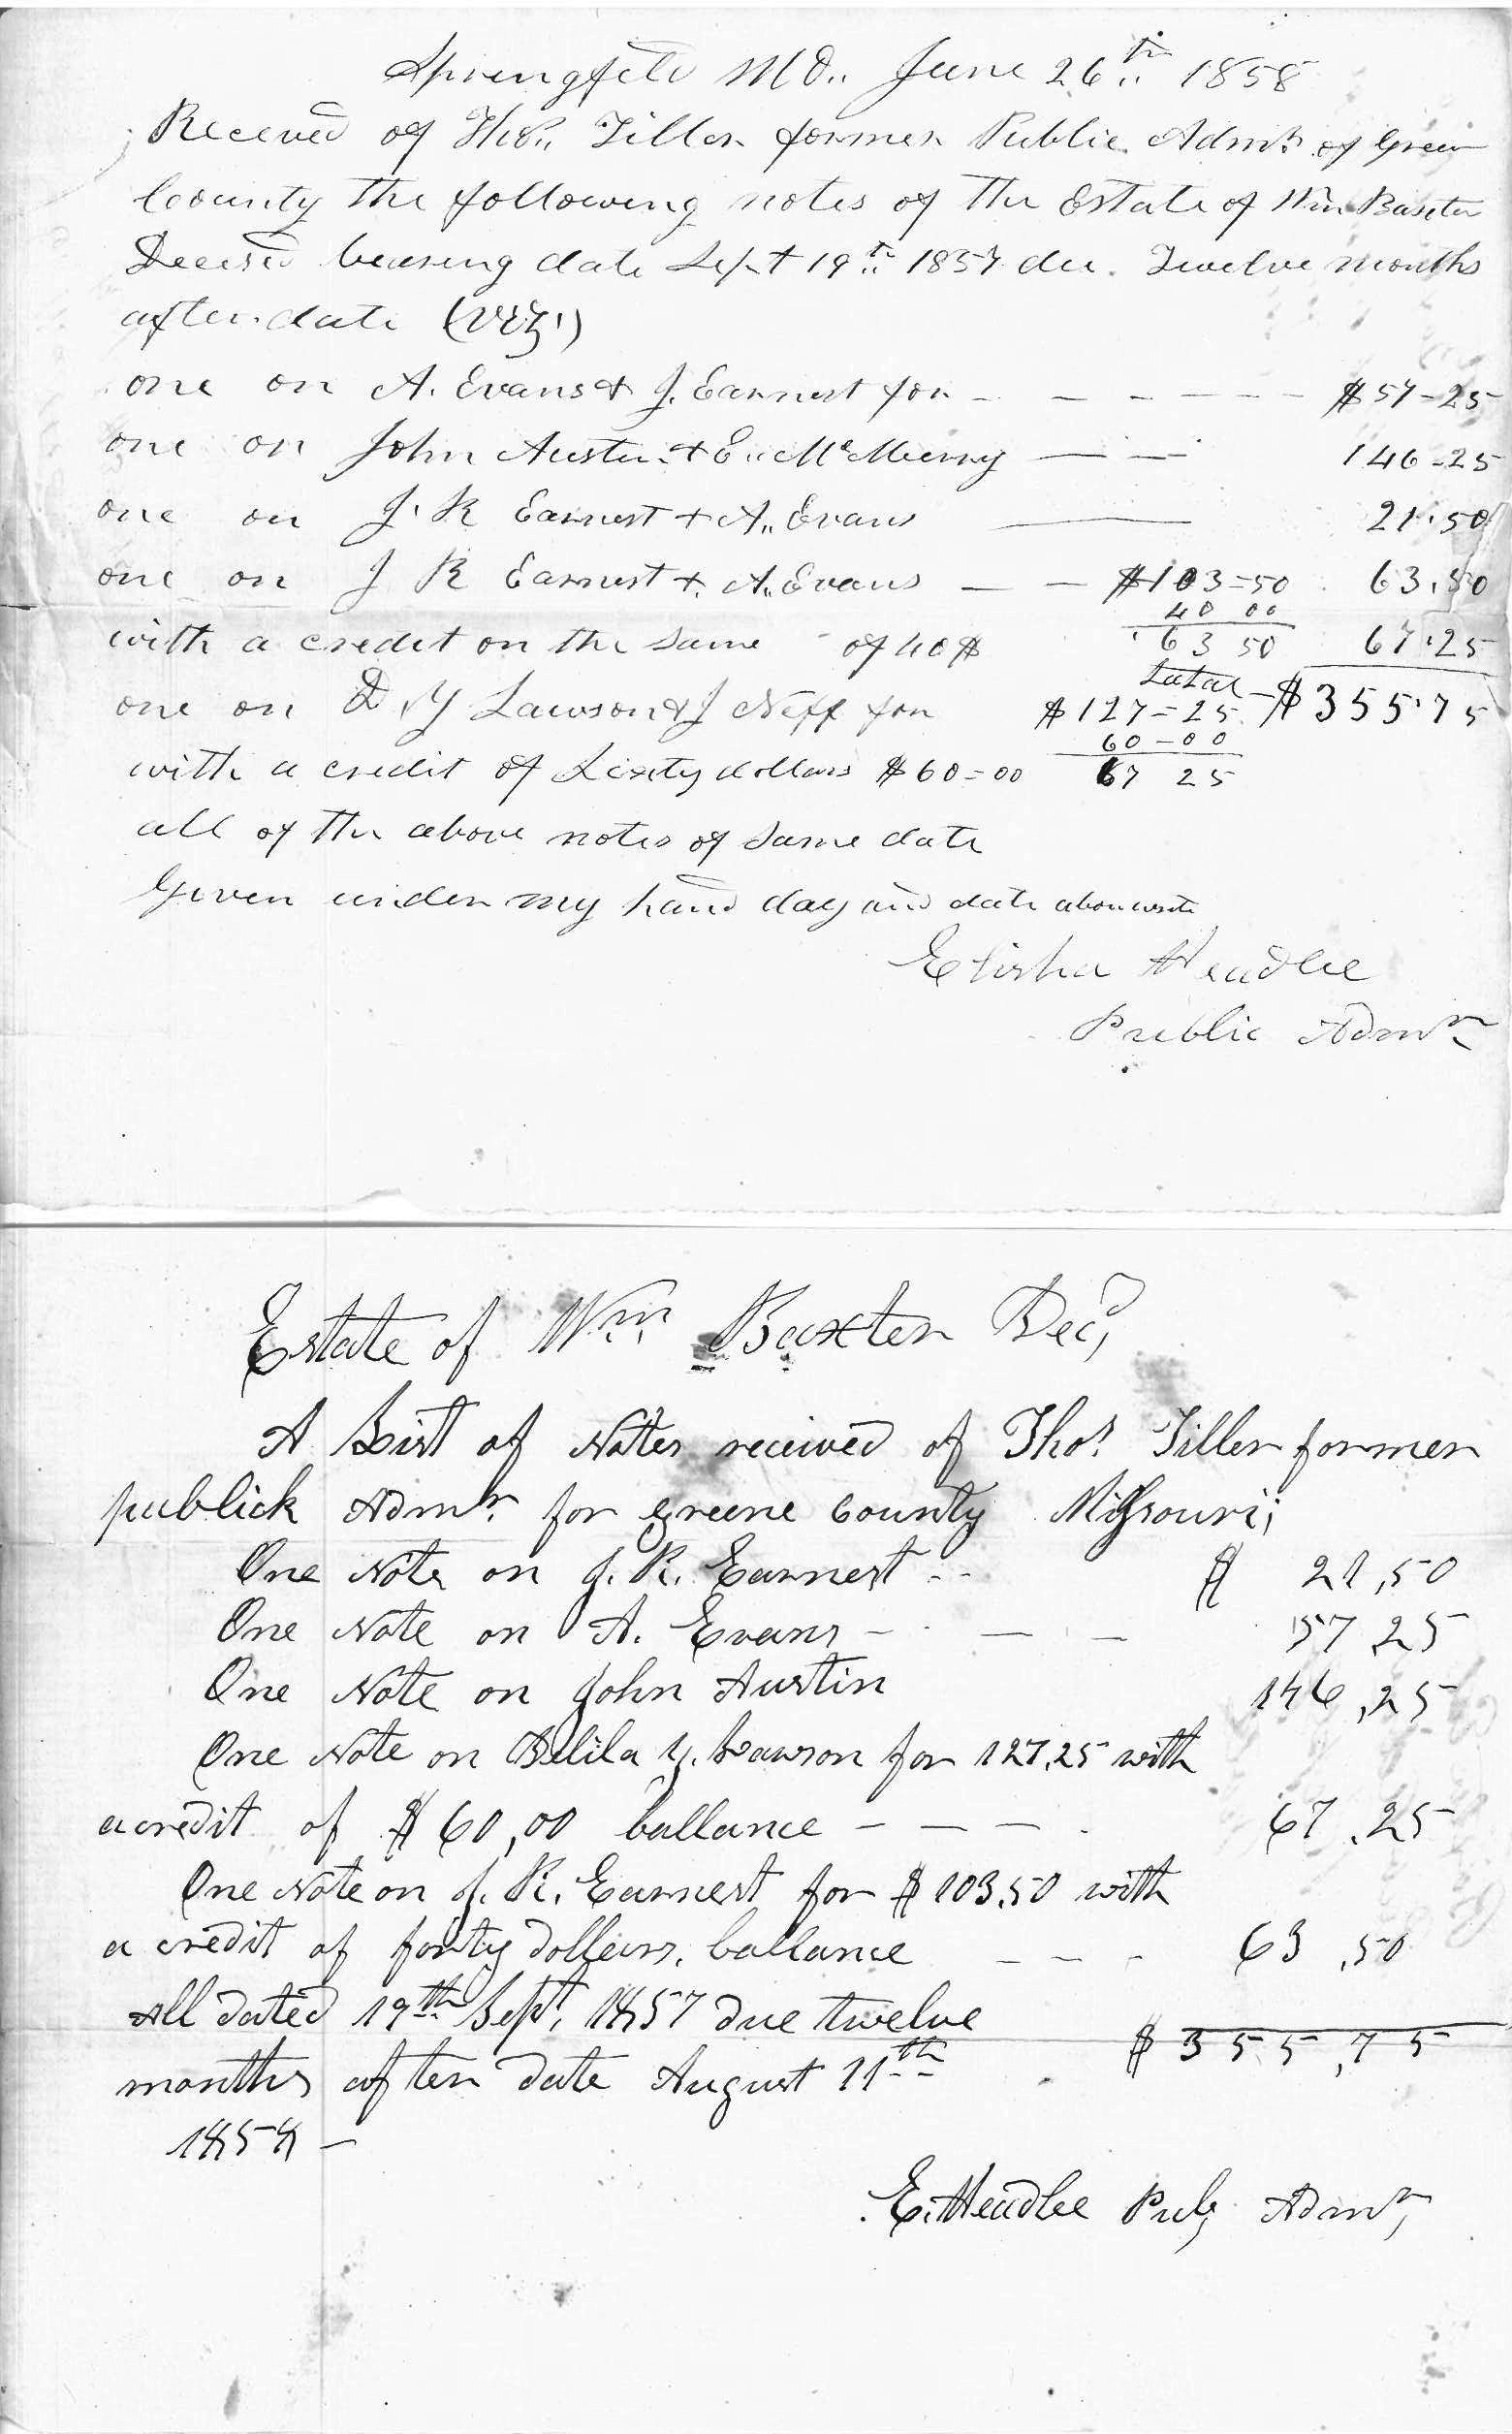 Springfield MO.. June 26th 1858
Received of Tho.. Tiller former Public Admr of Green
County the following notes of the Estate of Wm Baxter
Decesd bearing date Sept 19th 1857 due Twelve months
after date (viz)
one on A. Evans & J. Earnest for - - - - - - $57-25
one on John Austin & E.. McMurry — — 146-25
one on J. R Earnest + A,, Evans — 21.50
one on J R Earnest + A,, Evans — — $103=50 63.50
40 00
with a credit on the same of 40$ 63 50 67.25
total - $355.75
one on D. Y Lawson & J Neff for $127=25
60-00
with a credit of Sixty dollars $60=00 67 25
all of the above notes of same date
Given under my hand day and date above write
Elisha Headlee
Public Admr
Estate of Wm Baxter Decd,
A List of Notes received of Thos Tiller former
publick Admr for greene county Missouri;
One Note on J. R. Earnest - - $ 21,50
One Note on A. Evans - - — — 57 25
One Note on John Austin 146,25
One Note on Delila Y. Lawson for 127.25 with
a credit of $60,00 ballance - — — - 67.25
One Note on J. R. Earnest for $103.50 with
a credit of forty dollars, ballance - - - 63,50
All dated 19th Sept, 1857 due twelve
$355,75
months after date August 11th
1858 —
E. Headlee Pub, Admr,